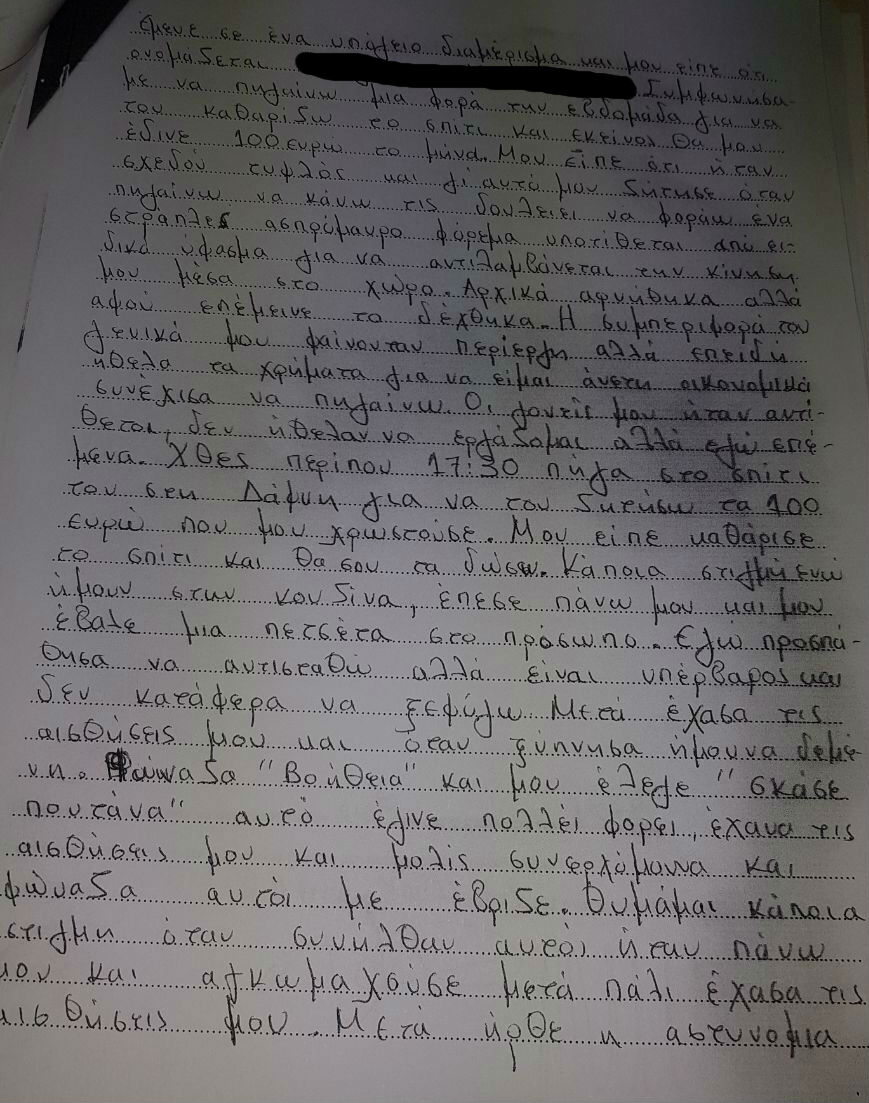 έμενε σε ένα υπόγειο διαμέρισμα και μου είπε ότι
ονομάζεται Συμφωνήσα-
με να πηγαίνω μια φορά την εβδομάδα για να
του καθαρίζω το σπίτι και εκείνος θα μου
έδινε 100 ευρώ το μήνα. Μου είπε ότι ήταν
σχεδόν τυφλός και γι αυτό μου ζήτησε όταν
πηγαίνω να κάνω τις δουλειες να φοράω ένα
στράπλες ασπρόμαυρο φόρεμα υποτίθεται από ει-
δικό ύφασμα για να αντιλαμβάνεται την κίνηση
μου μέσα στο χώρο. Αρχικά αρνήθηκα αλλά
αφού επέμεινε το δέχθηκα. Η συμπεριφορά του
γενικά μου φαίνονταν περίεργη αλλά επειδή
ήθελα τα χρήματα για να είμαι άνετη οικονομικά
συνέχισα να πηγαίνω. Οι γονείς μου ήταν αντί-
θετοι, δεν ήθελαν να εργάζομαι αλλά εγώ επέ-
μενα. Χθες περίπου 17:30 πήγα στο σπίτι
του στη Δάφνη για να του ζητήσω τα 100
ευρώ που μου χρωστούσε. Μου είπε καθάρισε
το σπίτι και θα σου τα δώσω. Κάποια στιγμή ενώ
ήμουν στην κουζίνα, έπεσε πάνω μου και μου
έβαλε μια πετσέτα στο πρόσωπο. Εγώ προσπά-
θησα να αντισταθώ αλλά είναι υπέρβαρος και
δεν κατάφερα να ξεφύγω. Μετά έχασα τις
αισθήσεις μου και όταν ξύπνησα ήμουνα δεμέ-
νη. Φώναζα "Βοήθεια" και μου έλεγε "σκάσε
πουτανα" αυτό έγινε πολλές φορές, έχανα τις
αισθήσεις μου και μόλις συνερχόμουνα και
φώναζα αυτός με έβριζε. Θυμάμαι κάποια
στιγμή όταν συνήλθαν αυτός ήταν πάνω
μου και αγκωμαχούσε μετά πάλι έχασα τις
αισθήσεις μου. Μετά ήρθε η αστυνομια